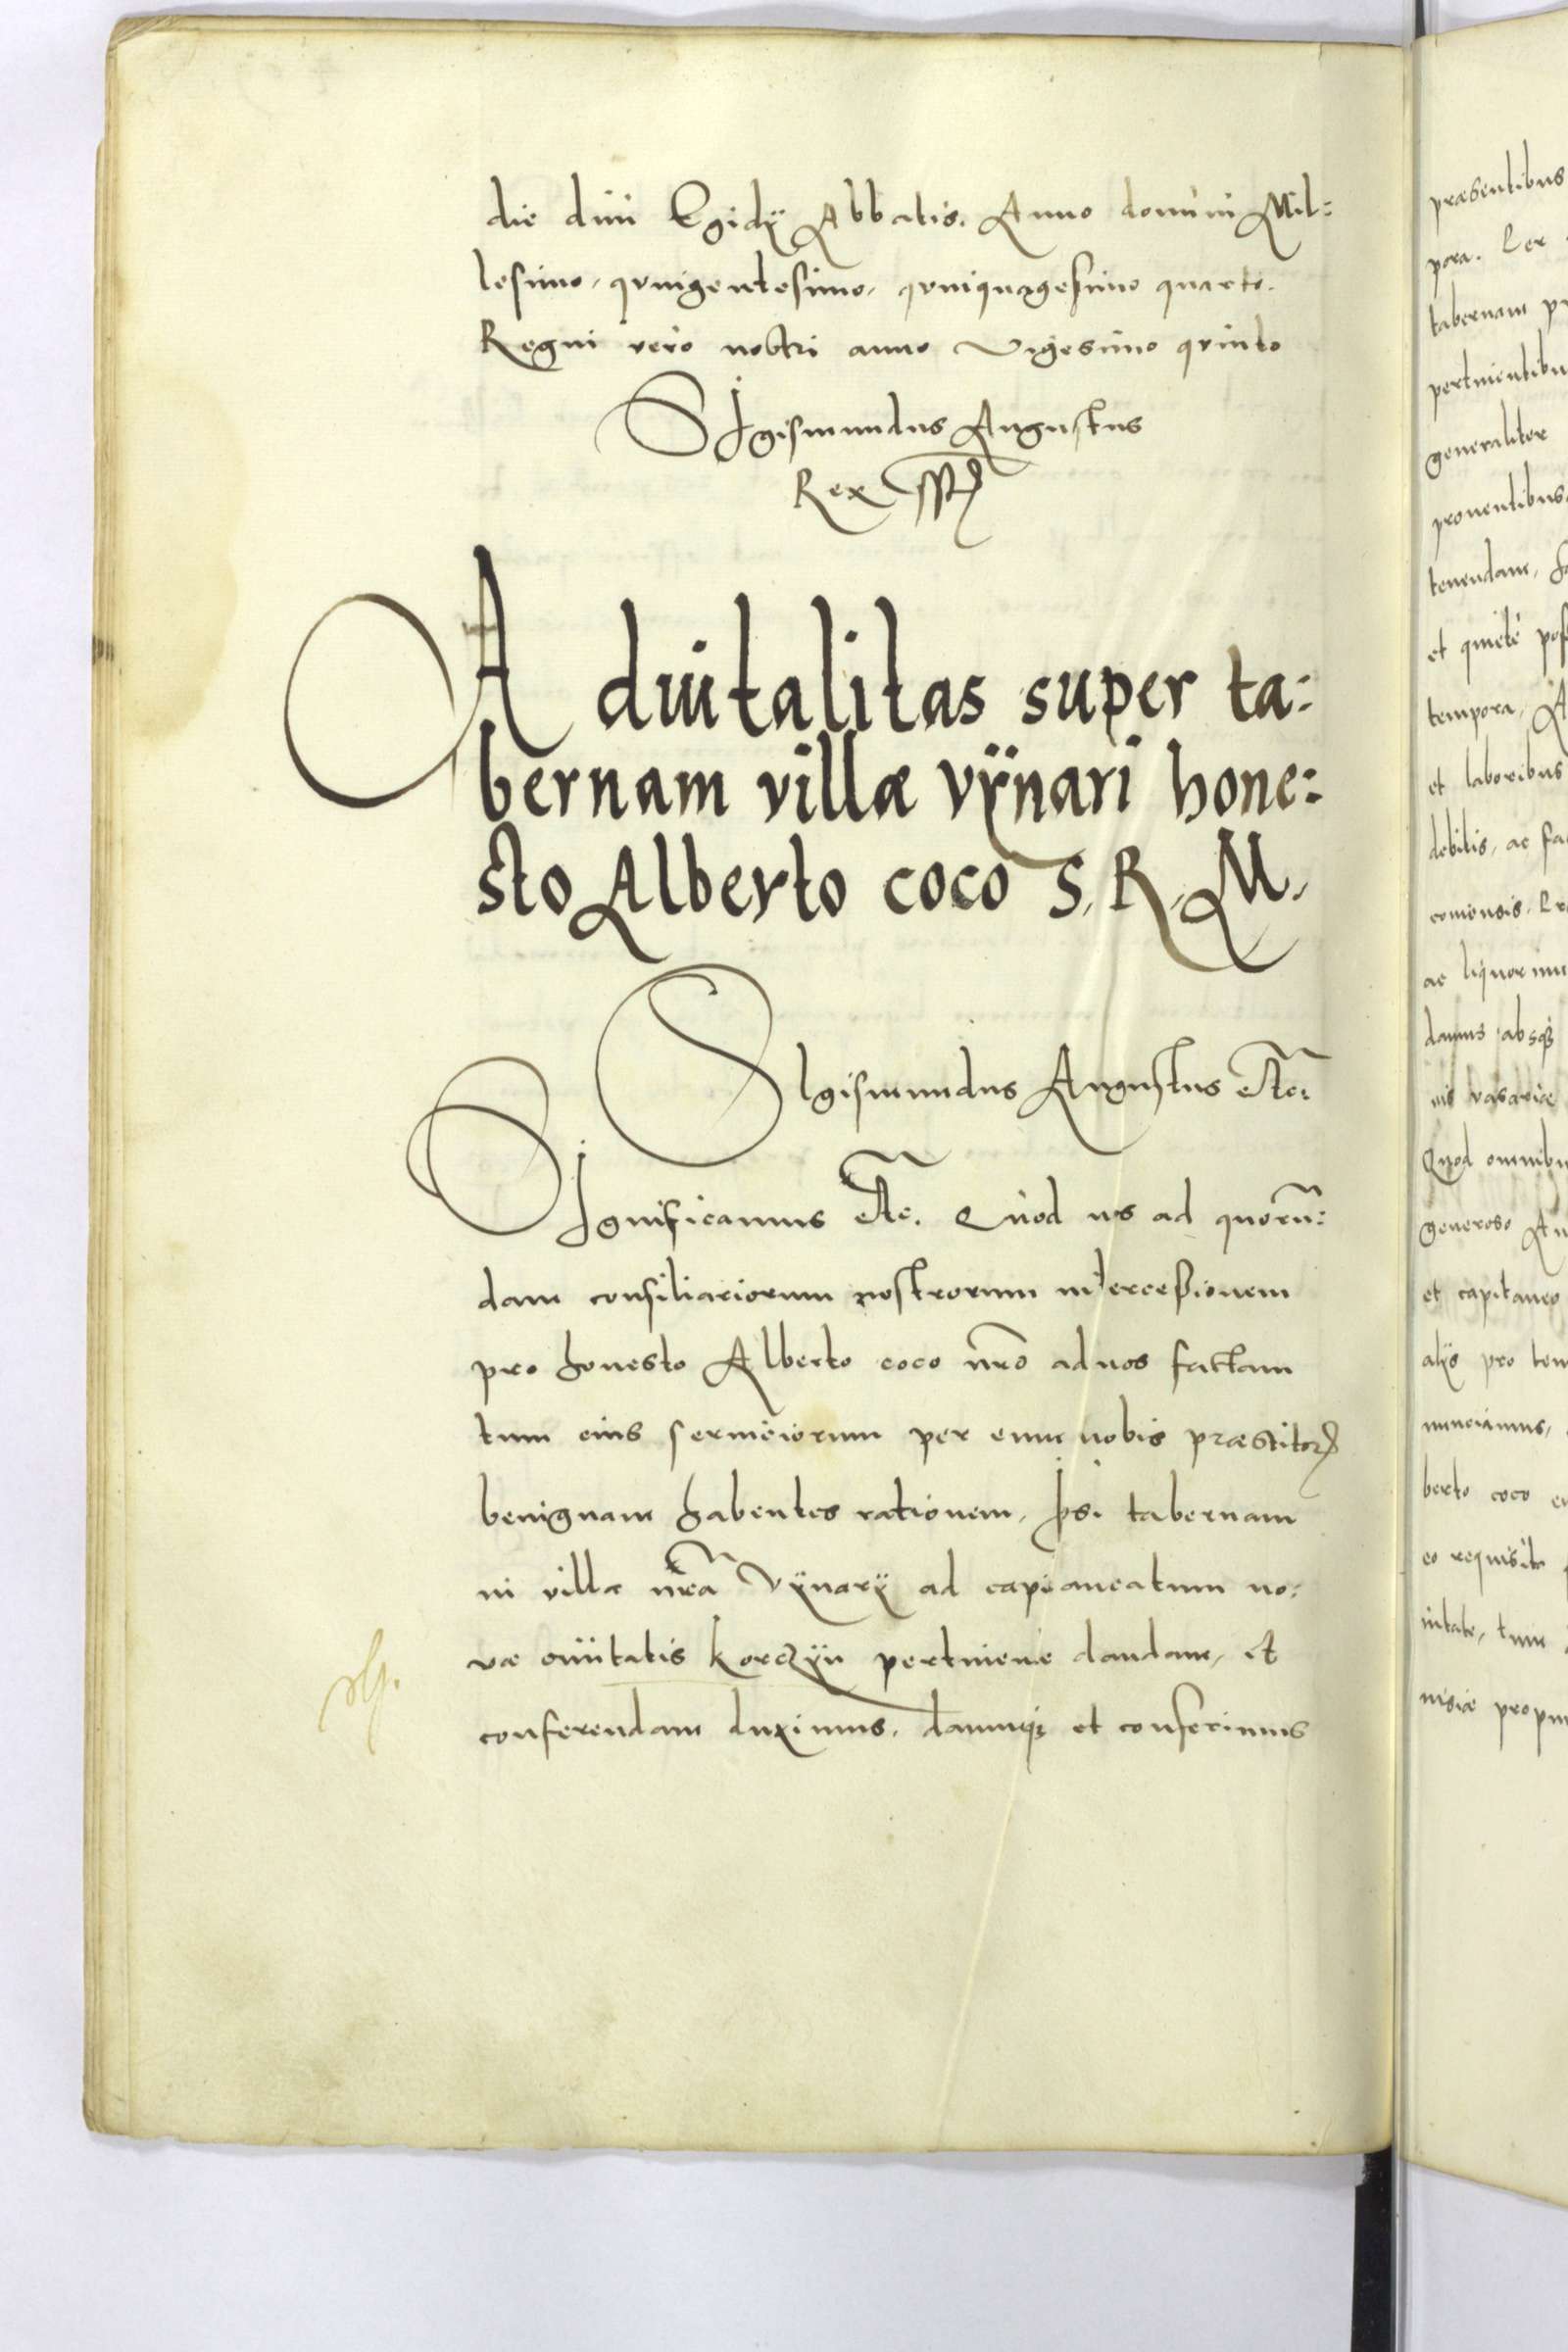 die diui Egidÿ Abbatis. Anno domini Mil:
lesimo, quingentesimo, quinquagesimo quarto.
Regni vero nostri anno Vigesimo quinto
SIgismundus Augustus
Rex
Aduitalitas super ta:
bernam villæ vÿnari hone:
sto Alberto coco S. R. M.
SIgismundus Augustus etc.
SIgnificamus etc. Quod nos ad quorũ:
dam consiliariorum nostrorum intercessionem
pro honesto Alberto coco nro ad nos factam
tum eius seruiciorum per eum nobis præstitor
benignam habentes rationem, tabernam
in villa nrã Vÿnarÿ ad capitaneatum no:
væ ciuitatis korczÿn pertinenᵉ dandam, et
conferendam duximus, damusq; et conferimus
præsentibus
pora.
tabernam
pertinentibu
generaliter
prouentibus
tenendam,
et quiete
tempora,
et laboribus
debitis, ac
ac liquorum
damus absq;
Quod omnibu
generoso
et capitaneo
alÿs pro tem
berto coco
eo requisito
tum